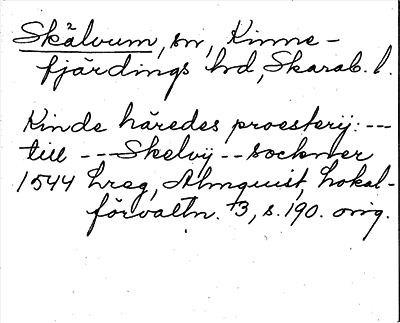 Skälvum, sn, Kinne-
fjärdings hd, Skarab. l.
Kinde häredes proesterij: ---
till --- Skelvij -- sockner
1544 hreg, Almquist, Lokal-
förvaltn. 3, s. 190. orig.